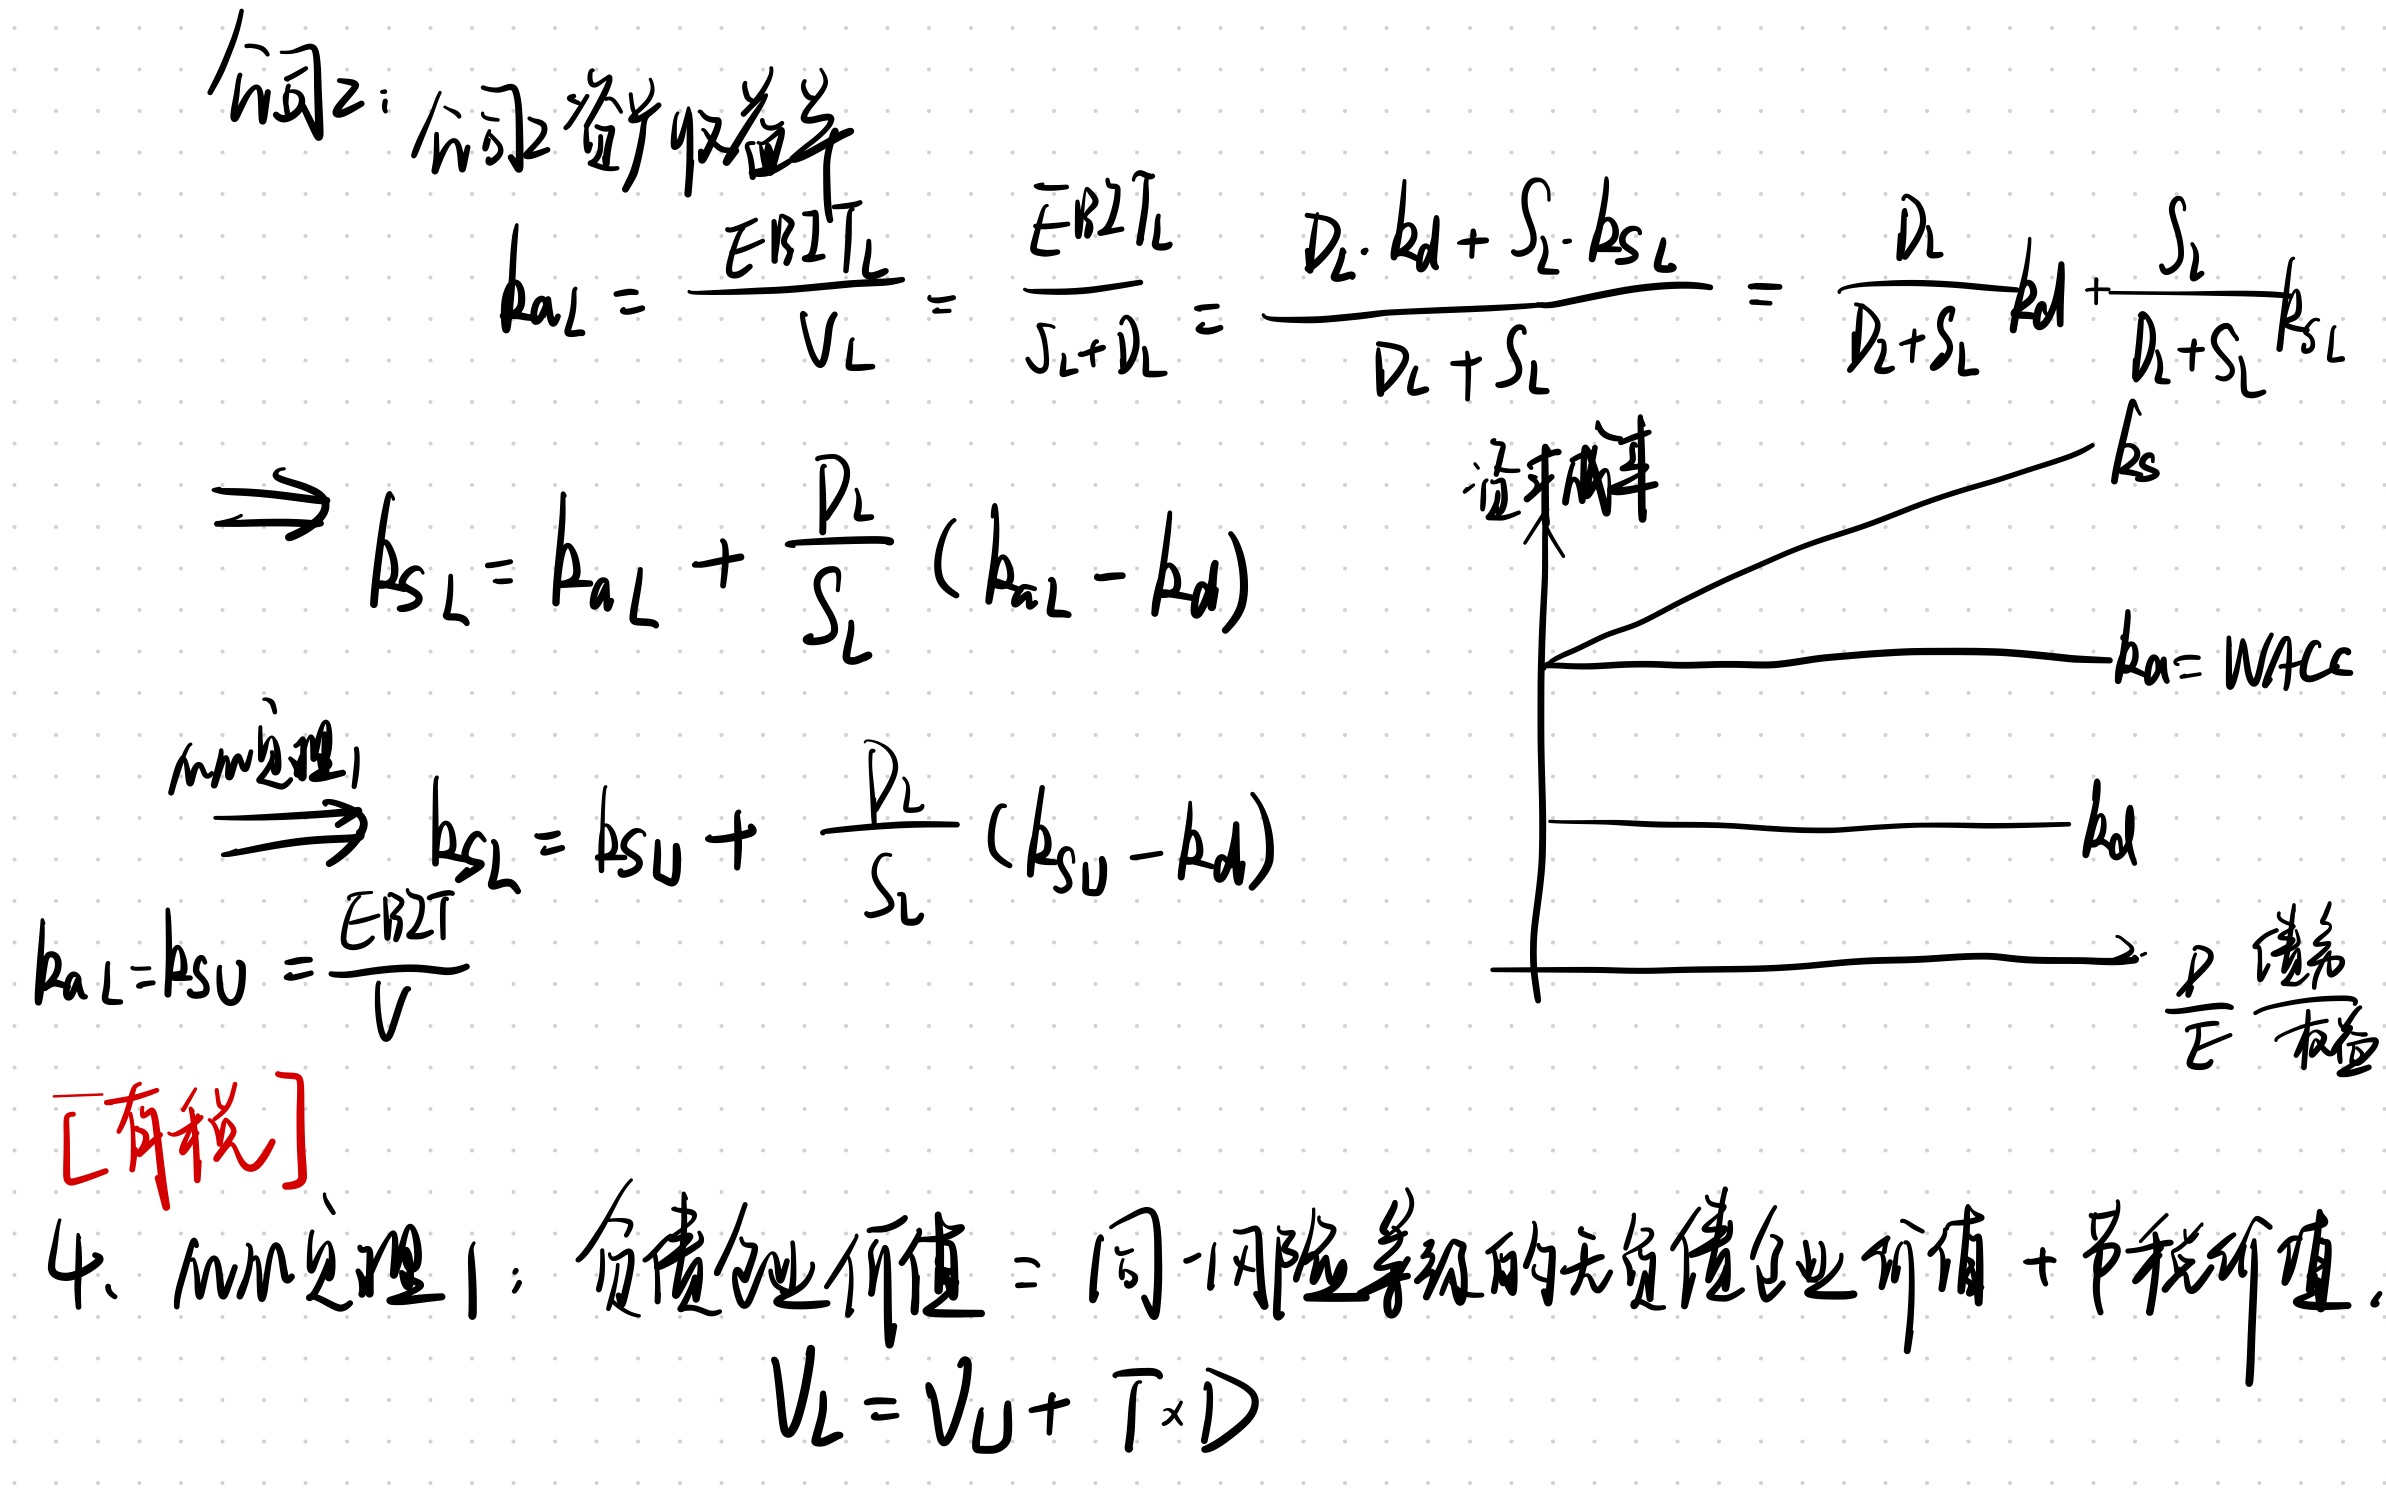 命题2:
命题2资产收益率
k_{aL} = \frac{EBIT_L}{V_L} = \frac{EBIT_L}{S_L + D_L} = \frac{D_L · k_d + S_L · k_{sL}}{D_L + S_L} = \frac{D_L}{D_L + S_L} k_d + \frac{S_L}{D_L + S_L} k_{sL}
⇒ k_{sL} = k_{aL} + \frac{D_L}{S_L} (k_{aL} - k_d)
mm定理1
⇒ k_{sL} = k_{sU} + \frac{D_L}{S_L} (k_{sU} - k_d)
k_{aL} = k_{sU} = \frac{EBIT}{V}
k_s
k_a = WACC
k_d
\frac{D}{E} \frac{债务}{权益}
[有税]
4、mm定理1: 负债企业价值 = 同一风险等级的无负债企业价值 + 节税价值.
V_L = V_U + T × D